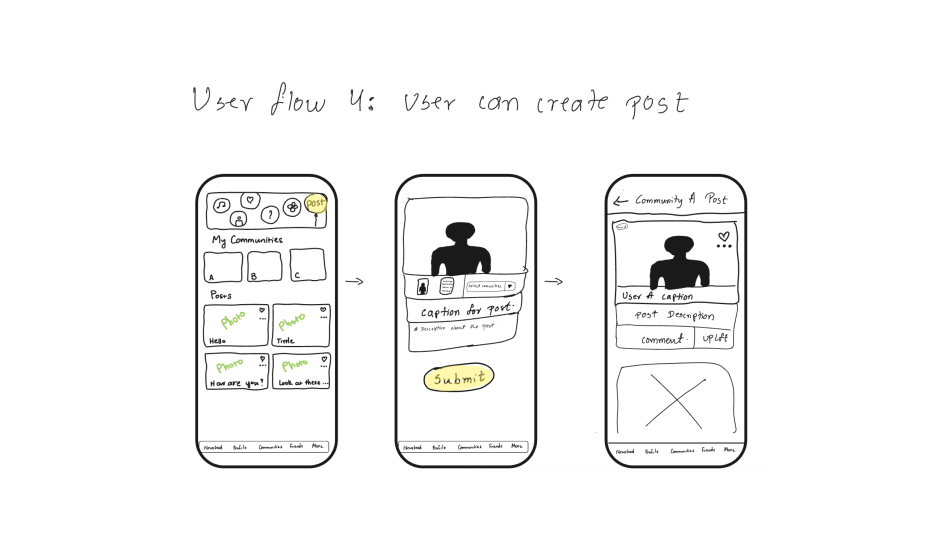 User flow 4: User can create post
Post
?
My Communities
A
B
C
Posts
Photo
Hello
Photo
Tittle
Photo
How are you!
Photo
Look at these ...
Newsfeed Profile Communities Friends More
Select communities
Caption for post.
# Description about the post
Submit
Newsfeed Profile Communities Friends More
← Community A Post
User A caption
Post Description
Comment. UPLift
Newsfeed Profile Communities Friends More